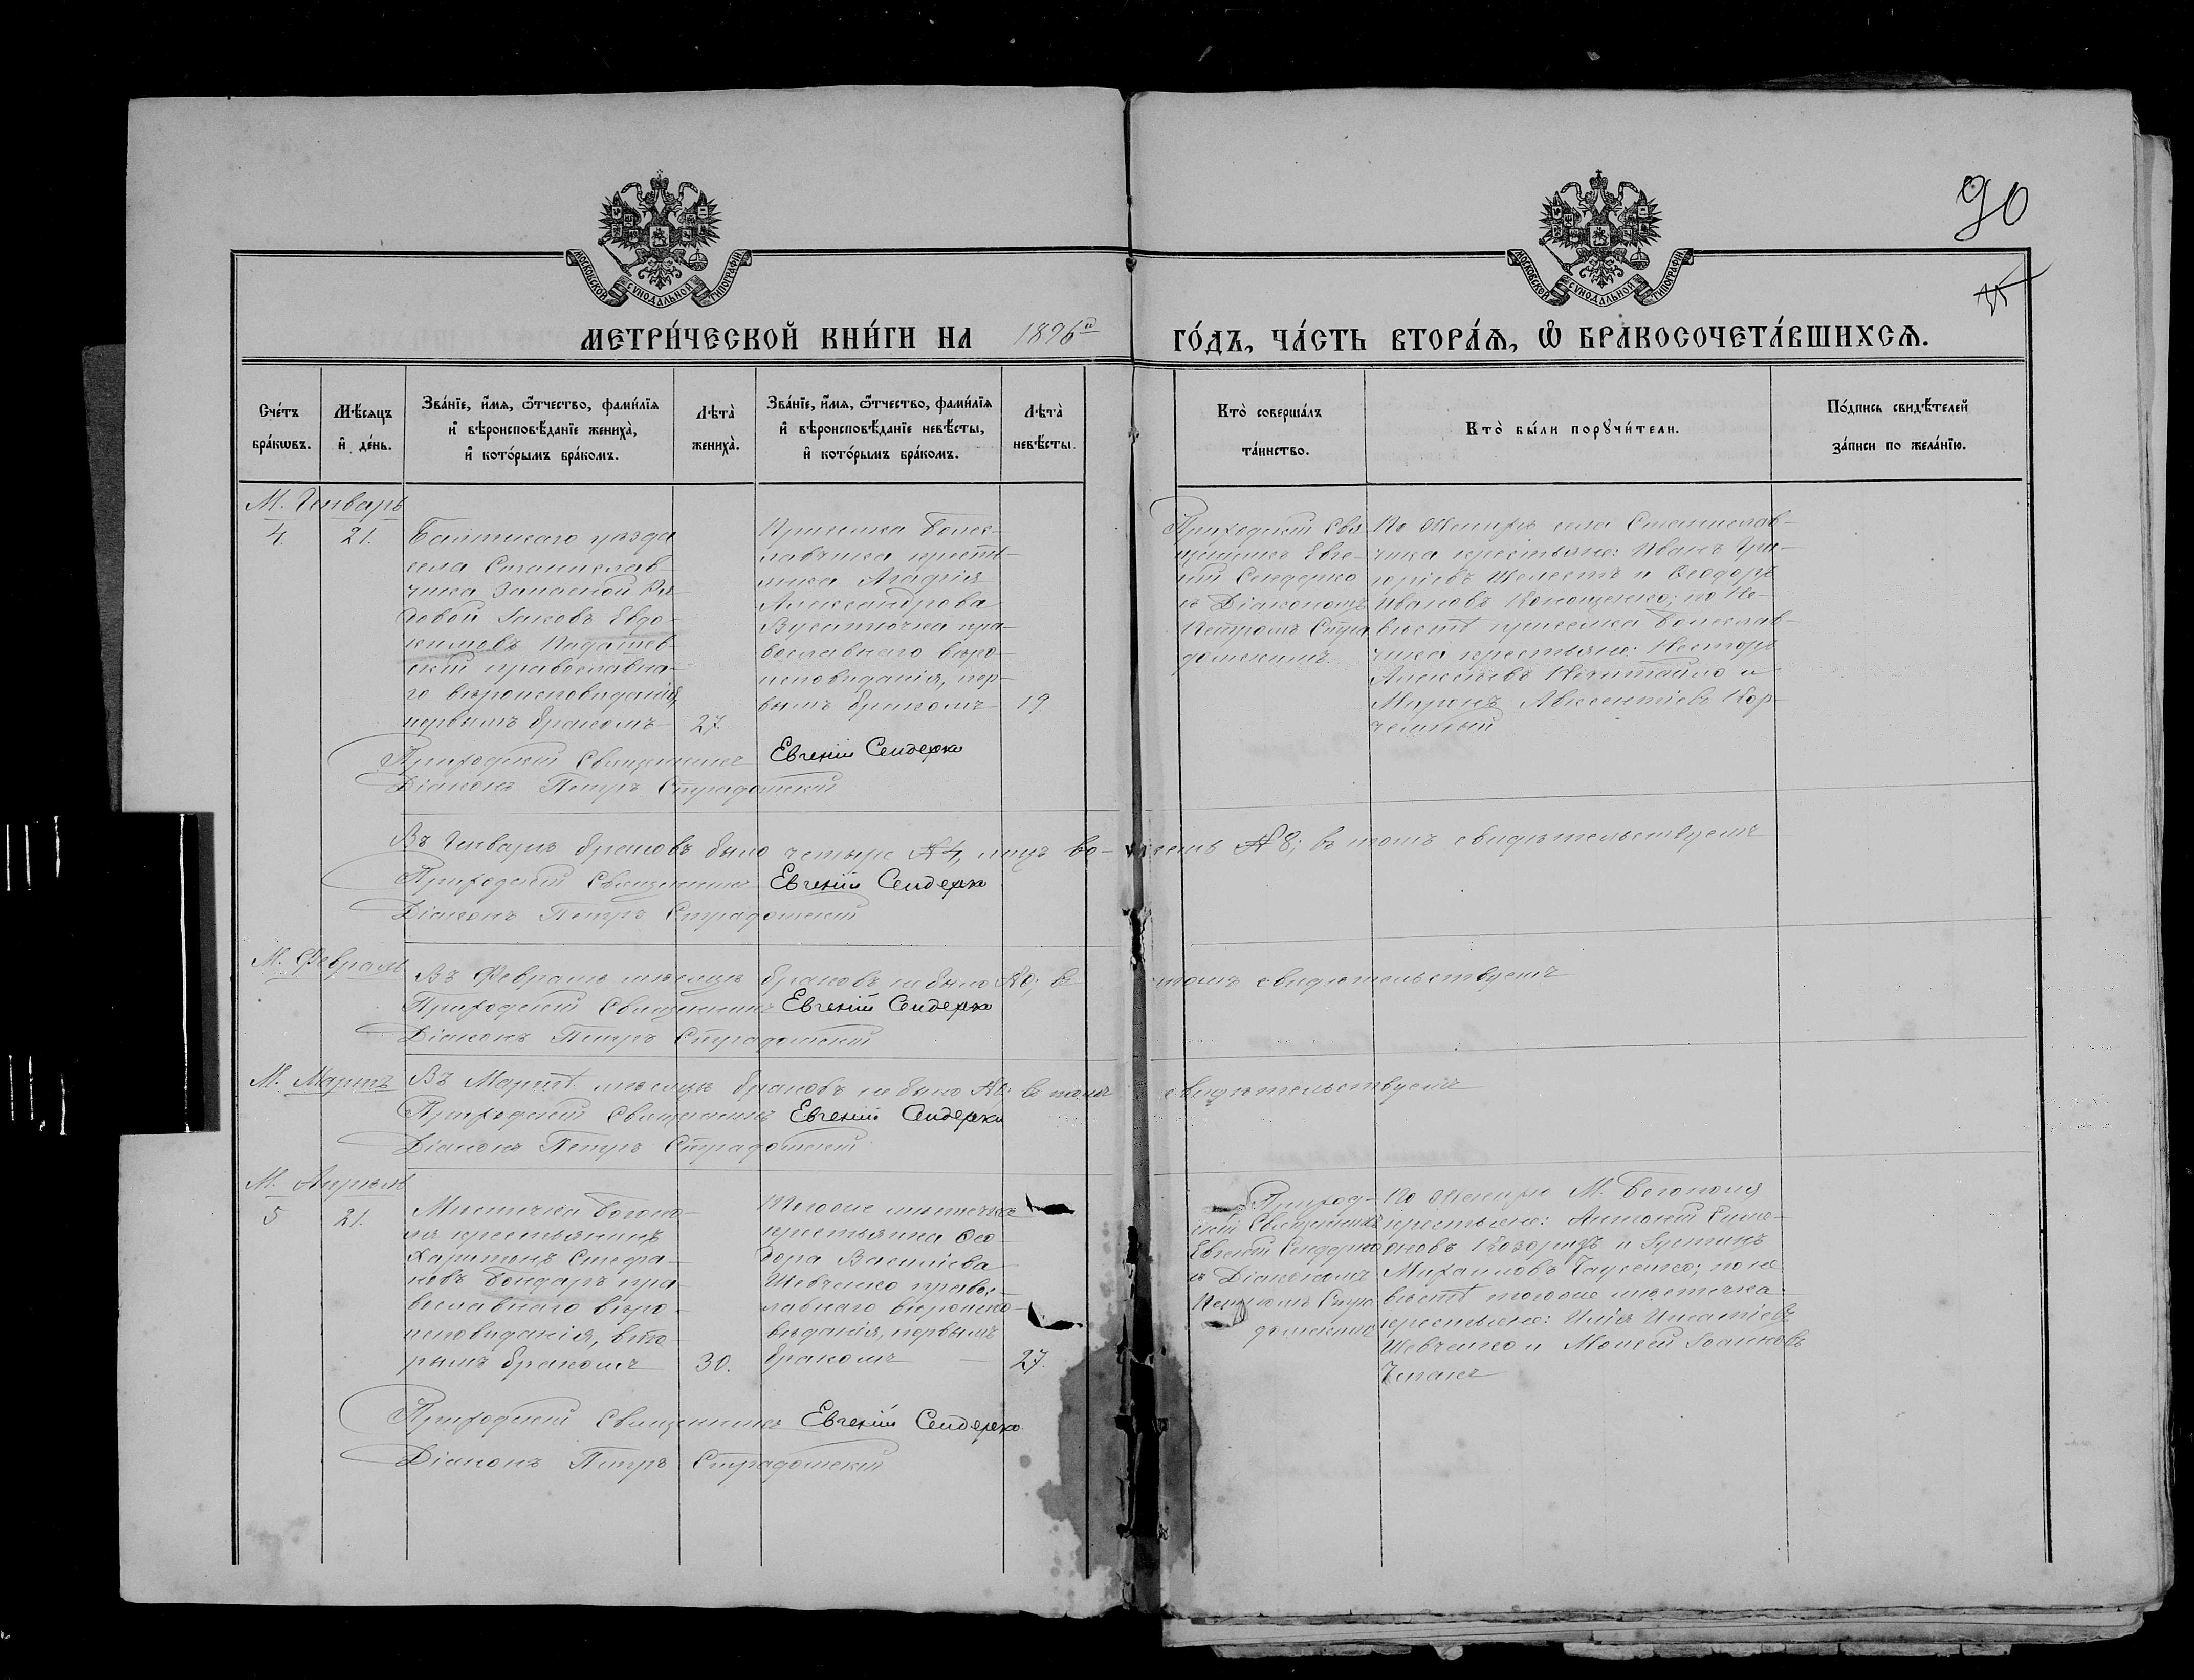 90
МОСКОВСКОЙ СУНОДАЛЬНОЙ ТИПОГРАФІИ
МОСКОВСКОЙ СУНОДАЛЬНОЙ ТИПОГРАФІИ
МЕТРИ́ЧЕСКОЙ КНИ́ГИ НА 1896й ГО́ДЪ, ЧА́СТЬ ВТОРА́Ѧ, Ѽ БРАКОСОЧЕТА́ВШИХСѦ.
Сче́тъ бра́кѡвъ.
Мѣ́сяцъ и҆ де́нь.
Зва́нїе, и҆́мѧ, ѻ҆́тчество, фами́лїѧ
и҆ вѣроисповѣ́данїе жениха̀,
и҆ кото́рымъ бра́комъ.
Лѣта̀ жениха̀.
Зва́нїе, и҆́мѧ, ѻ҆́тчество, фами́лїѧ
и҆ вѣроисповѣ́данїе невѣ́сты,
и҆ кото́рымъ бра́комъ.
Лѣта̀ невѣ́сты.
Кто̀ соверша́лъ
та́инство.
Кто̀ бы́ли порꙋчи́тели.
По́дпись свидѣ́телей
за́писи по жела́нїю.
М. Генварь
4.
21.
Балтскаго уѣзда
села Станислав-
чика Запасной Ря-
довой Іаковъ Евдо-
кимовъ Подашев-
скій православна-
го вѣроисповѣданія,
первымъ бракомъ
27.
Приселка Болес-
лавчика кресть-
янка Агафія
Александрова
пра-
вославнаго вѣро-
исповѣданія, пер-
вымъ бракомъ
19.
Приходскій Свя-
щенникъ Евге-
ній Сендерко
съ Діакономъ
Петромъ Стра-
домскимъ.
По Женихѣ села Станислав-
чика крестьяне: Иванъ Гри-
горіевъ Шелестъ и Ѳеодоръ
Ивановъ Кононенко; по Не-
вѣстѣ приселка Болеслав-
чика крестьяне: Несторъ
Алексѣевъ Нечитайло и
Миронъ Авксентіевъ Кор-
чемный
Приходскій Священникъ Евгеній Сендерко
Діаконъ Петръ Страдомскій
Въ Генварѣ браковъ было четыре №4, лицъ во-семь №8; въ томъ свидѣтельствуемъ
Приходскій Священникъ Евгеній Сендерко
Діаконъ Петръ Страдомскій
М. Февраль
Въ Февралѣ мѣсяцѣ браковъ не было №0; въ томъ свидѣтельствуемъ
Приходскій Священникъ Евгеній Сендерко
Діаконъ Петръ Страдомскій
М. Мартъ
Въ Мартѣ мѣсяцѣ браковъ не было №0; въ томъ свидѣтельствуемъ
Приходскій Священникъ Евгеній Сендерко
Діаконъ Петръ Страдомскій
М. Апрѣль
5
21.
Мѣстечка Богопо-
ля крестьянинъ
Харитонъ Стефа-
новъ Бондарь пра-
вославнаго вѣро-
исповѣданія, вто-
рымъ бракомъ
30.
Тогоже мѣстечка
крестьянка Ѳео-
дора Василіева
Шевченко право-
славнаго вѣроиспо-
вѣданія, первымъ
бракомъ
27.
Приход-
скій Священникъ
Евгеній Сендерко
съ Діакономъ
Петромъ Стра-
домскимъ
По Женихѣ М. Богополя
крестьяне: Антоній Симе-
оновъ Козоризъ и Іустинъ
Михаиловъ; по не-
вѣстѣ тогоже мѣстечка
крестьяне: Илія Игнатіевъ
Шевченко и Моисей Іоанновъ
Приходскій Священникъ Евгеній Сендерко
Діаконъ Петръ Страдомскій